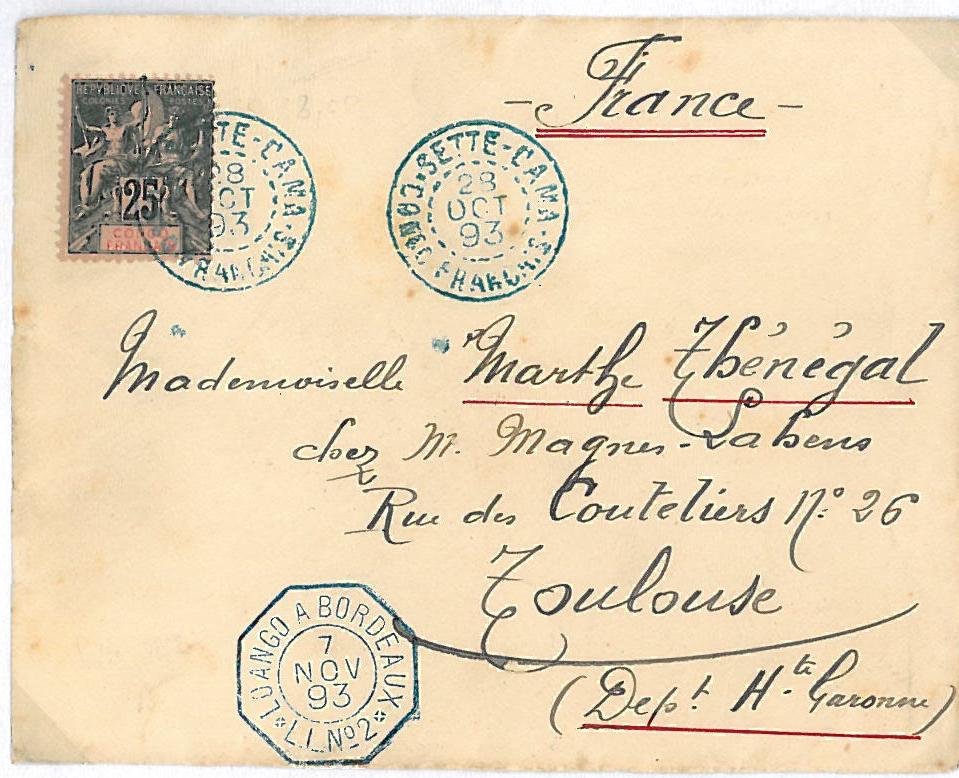 REPVBLIQVE FRANÇAISE
COLONIES POSTES
25
CONGO
FRANÇAIS
SETTE-CAMA
28
OCT
93
CONGO FRANÇAIS
SETTE-CAMA
28
OCT
93
CONGO FRANÇAIS
- France -
Mademoiselle Marthe Thénégal
chez M. Magnes-Labens
Rue des Couteliers N.º 26
Toulouse
(Dep.t H.te Garonne)
LOANGO A BORDEAUX
7
NOV
93
L.L. Nº 2